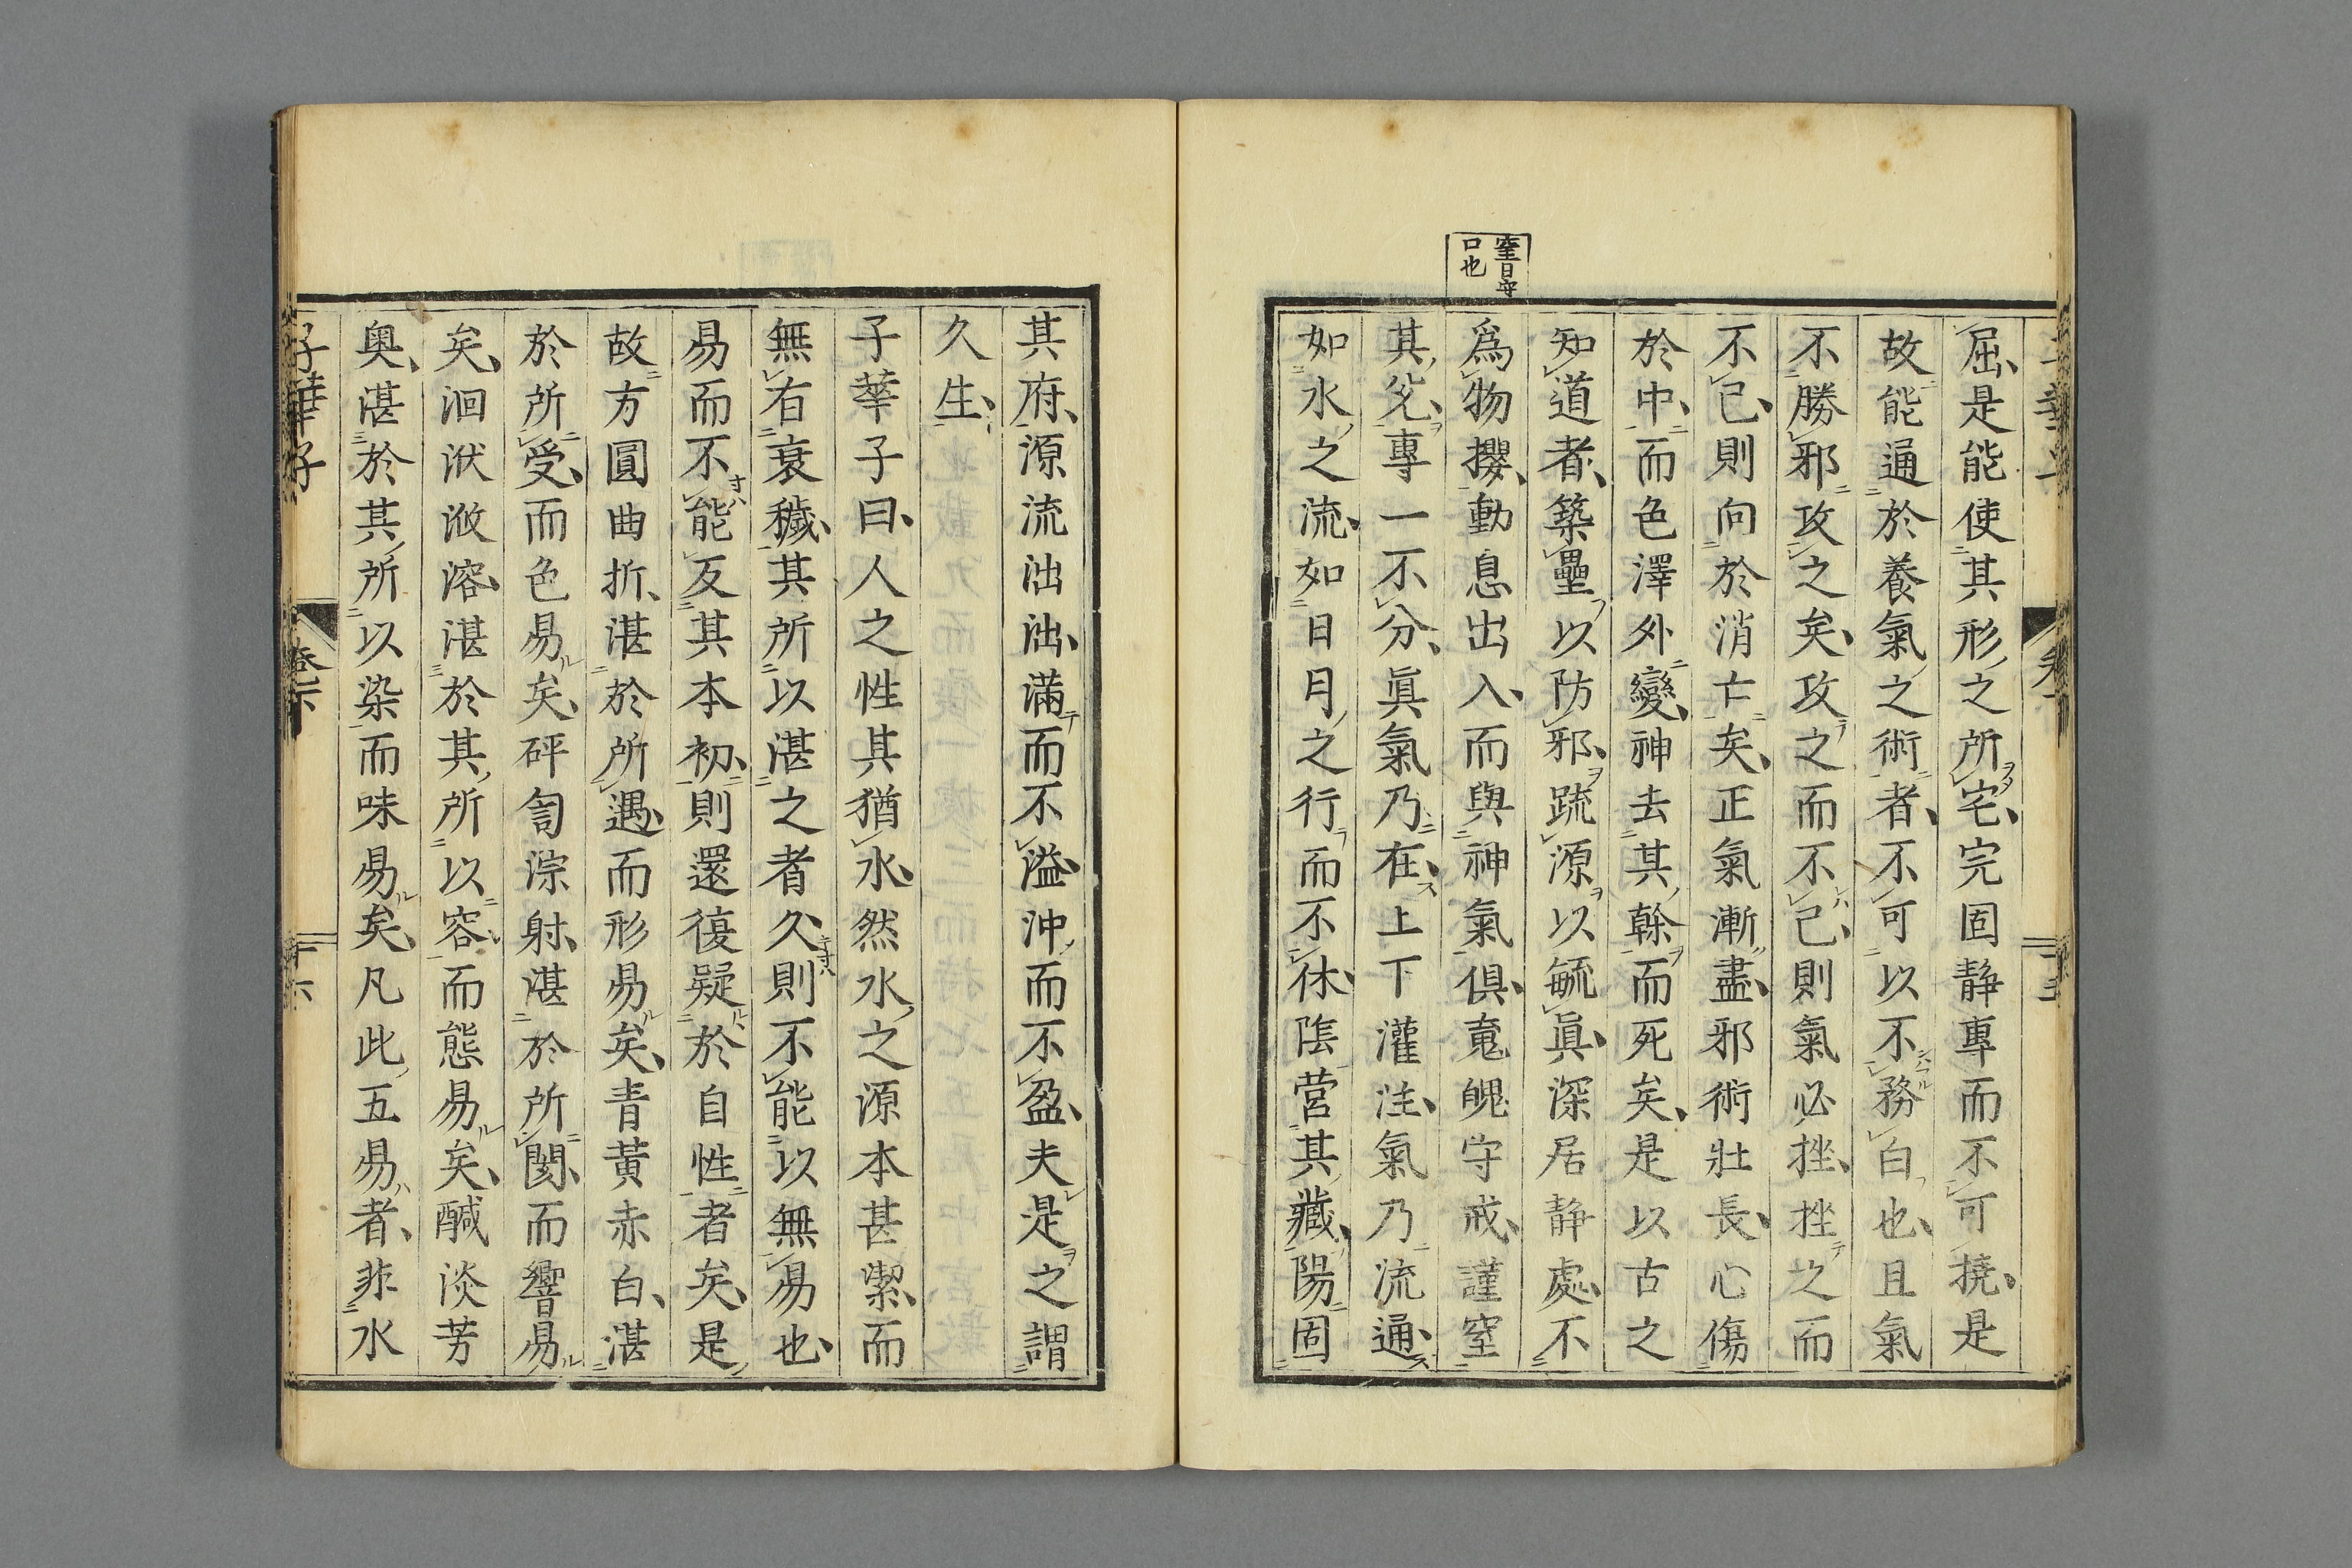 室曰守
口也
屈是能使其形之所宅完固静專而不可撓是
故能通於養氣之術者不可以不務白也且氣
不勝邪攻之矣攻之而不已則氣必挫挫之而
不已則向於消亡矣正氣漸盡邪術壯長心傷
於中而色澤外變神去其幹而死矣是以古之
知道者築壘以防邪疏源以毓眞深居静處不
爲物攖動息出入而與神氣俱䰟魄守戒謹窒
其兊專一不分眞氣乃在上下灌注氣乃流通
如水之流如日月之行而不休陰營其藏陽固
其府源流泏泏滿而不溢沖而不盈夫是之謂
久生
子華子曰人之性其猶水然水之源本甚潔而
無右衰穢其所以湛之者久則不能以無易也
易而不能反其本初則還復疑於自性者矣是
故方圓曲折湛於所遇而形易矣青黃赤白湛
於所受而色易矣砰訇淙射湛於所閡而響易
矣洄洑溵溶湛於其所以容而態易矣鹹淡芳
奥湛於其所以染而味易矣凡此五易者非水
子華子
卷下
十六